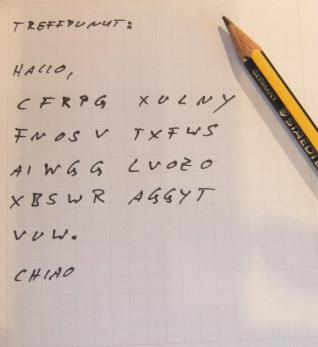 TREFFPUNUT:
HALLO,
CFRPG XULNY
FNOSV TXFWS
AIWGG LVOZO
XBSWR AGGYT
VUW.
CHIAO
GERMANY
STAEDTL